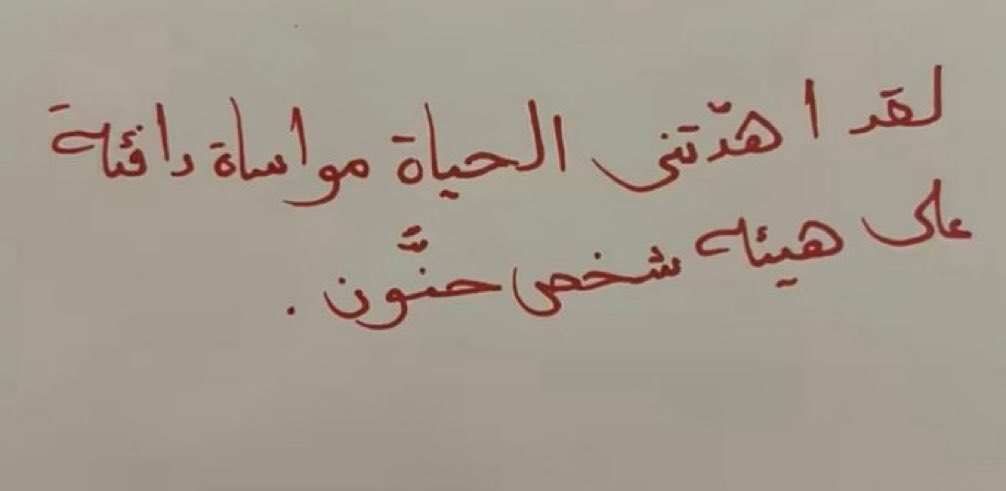 لقد اهدّتني الحياة مواساة دافئة
على هيئة شخص حنَّون .